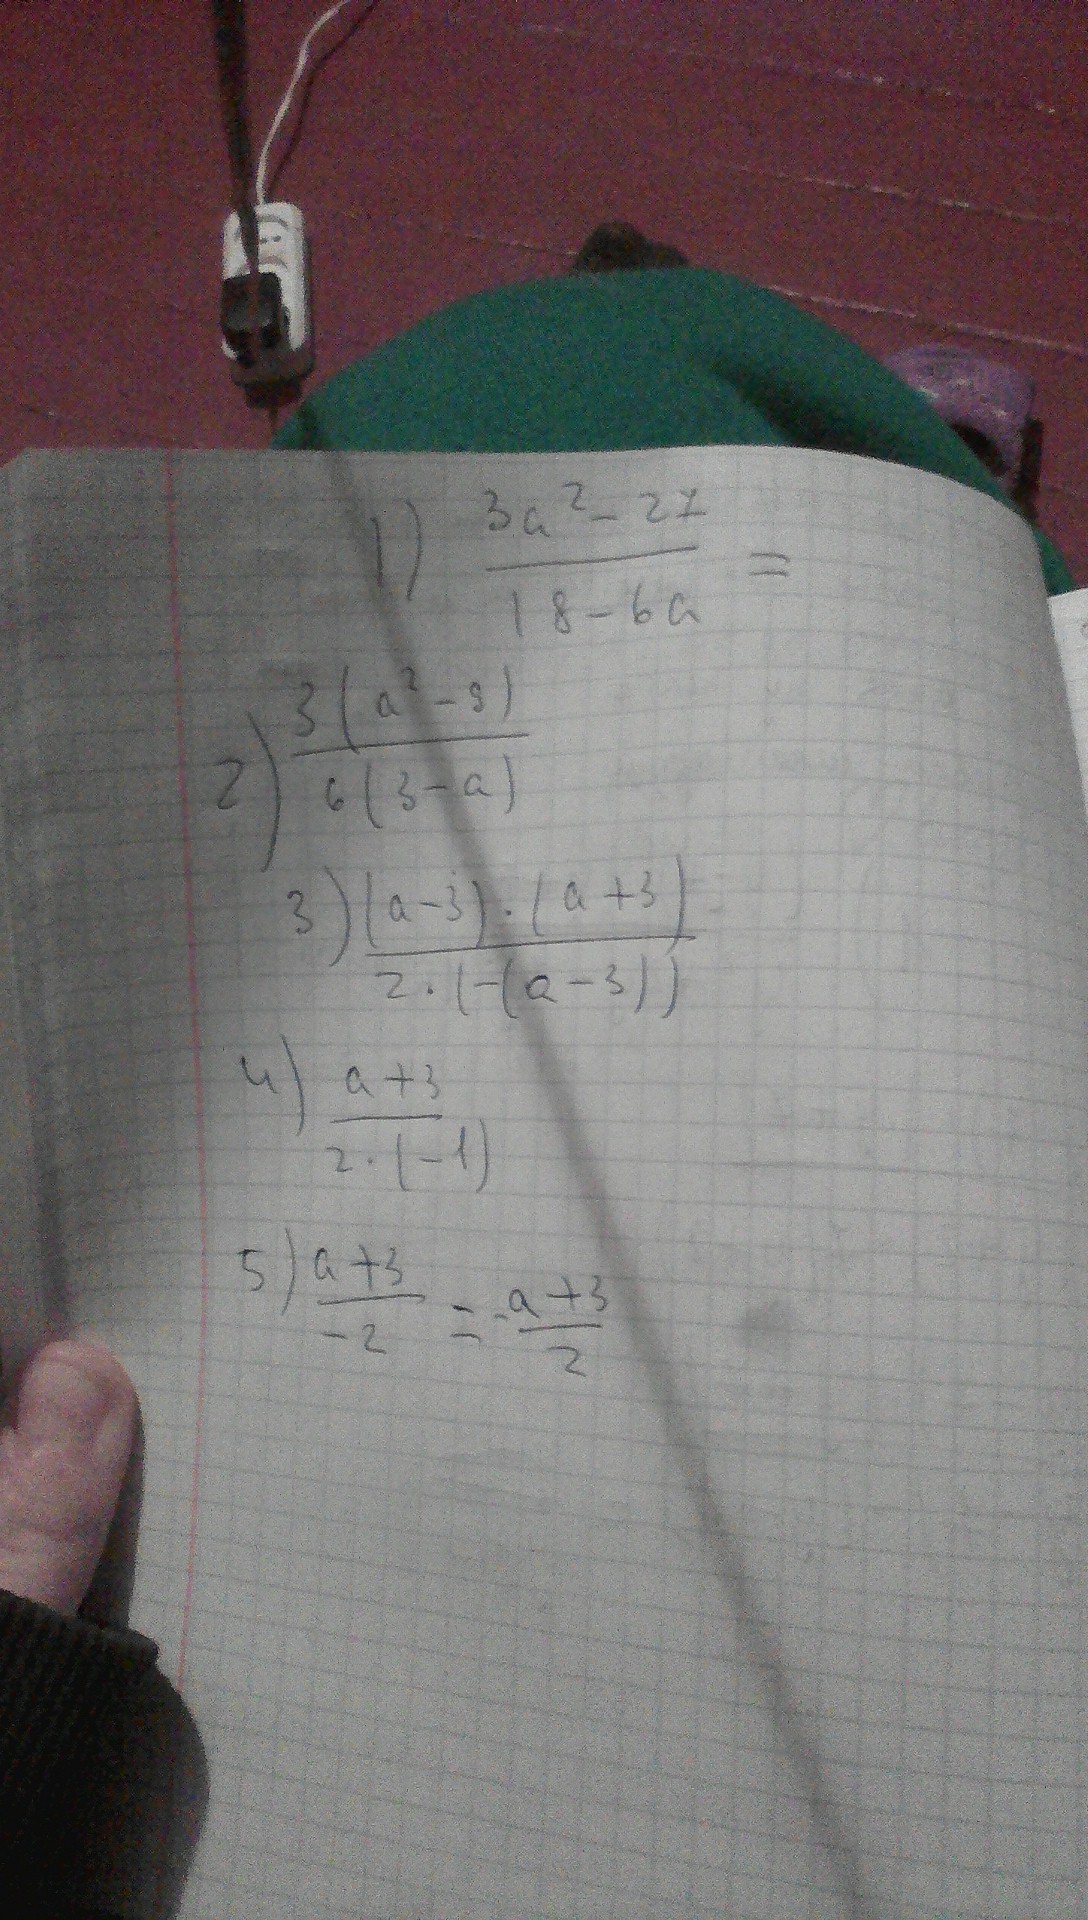 1) (3a² - 27)/(18 - 6a) =
2) 3(a² - 9)/6(3 - a)
3) (a - 3) · (a + 3)/2 · (-(a - 3))
4) a + 3/2 · (-1)
5) a + 3/-2 = -a + 3/2